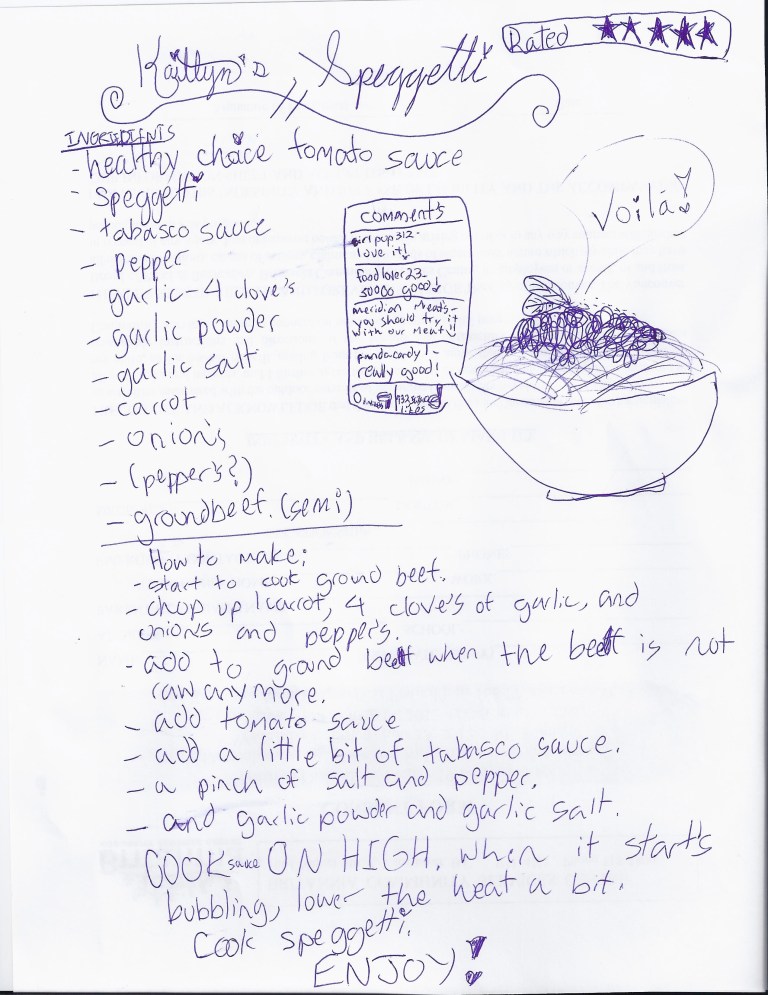 Rated ★★★★★
Kaitlyn's Speggetti
INGRIDIENTS
- healthy choice tomato sauce
- Speggetti
- tabasco sauce
- pepper
- garlic - 4 clove's
- garlic powder
- garlic salt
- carrot
- onion's
- (pepper's?)
- groundbeef. (semi)
comments
girlpup312-
love it!
foodlover23-
50000 good!
meridian meats-
you should try it
with our meat!!
pandacandy1-
really good!
0
likes
Voila!
How to make:
- start to cook ground beef.
- chop up 1 carrot, 4 clove's of garlic, and
onions and pepper's.
- add to ground beef when the beef is not
raw anymore.
- add tomato sauce
- add a little bit of tabasco sauce.
- a pinch of salt and pepper.
- and garlic powder and garlic salt.
COOK sauce ON HIGH, when it start's
bubbling, lower the heat a bit.
Cook speggetti.
ENJOY!